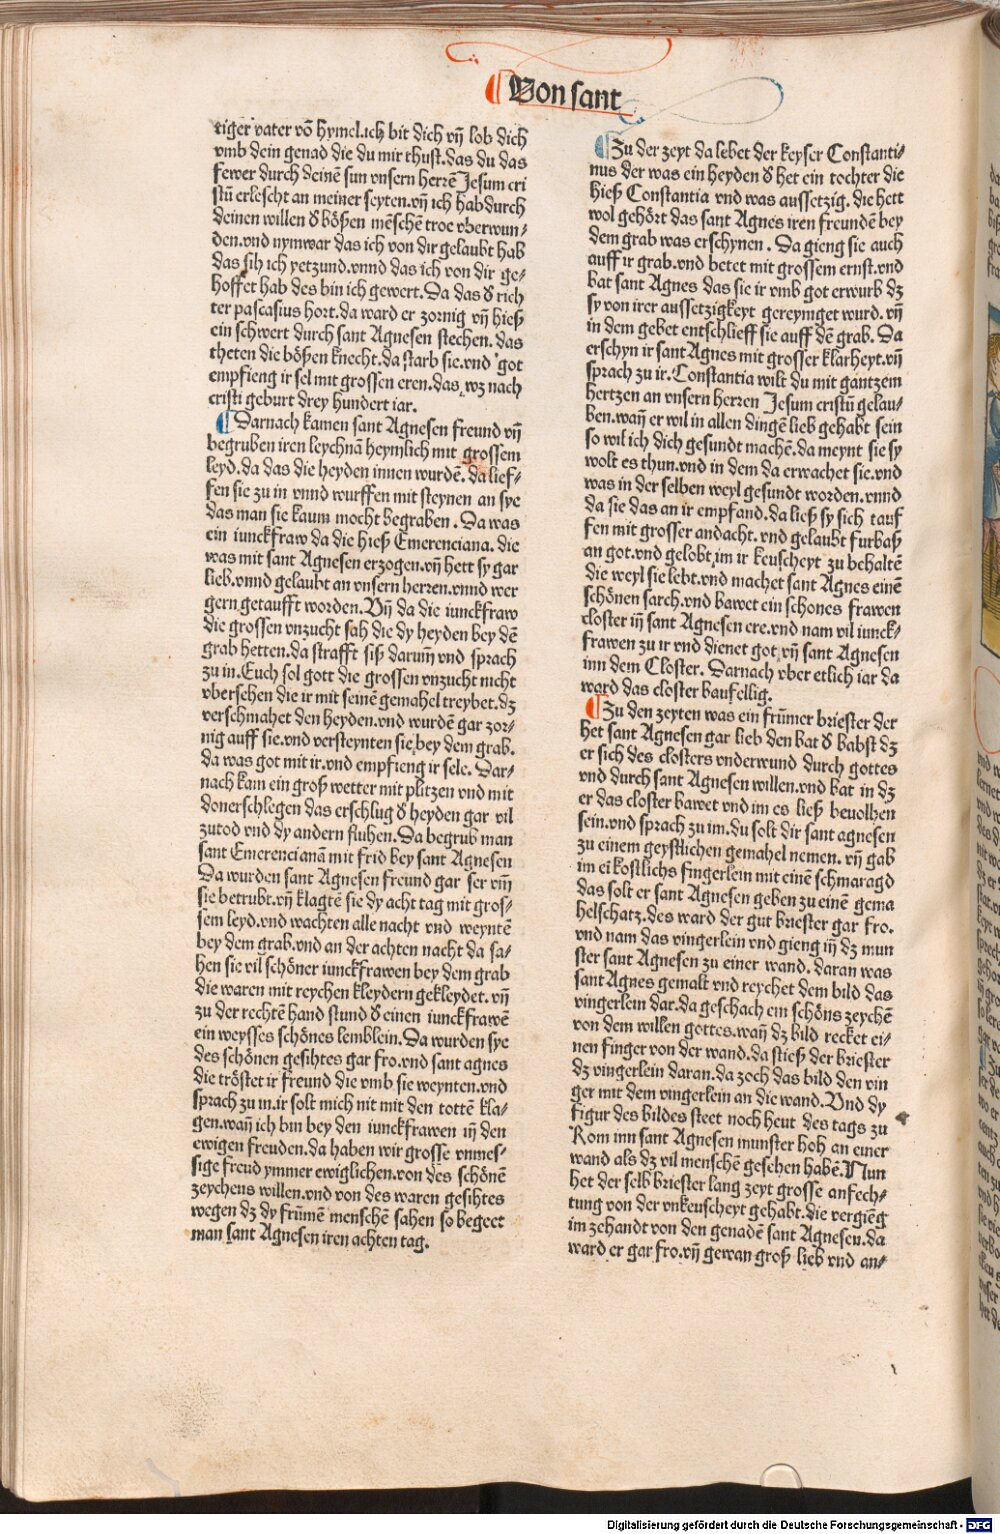 Von sant
tiger vater võ hymel.ich bit dich vñ lob dich
vmb dein genad die du mir thust.das du das
fewer durch deinẽ sun vnsern herrẽ Jesum cri
stũ erlescht an meiner seyten.vñ ich hab durch
deinen willen ð bôßen mẽschẽ troe vberwun-
den.vnd nymwar das ich von dir gelaubt hab
das sih ich yetzund.vnnd das ich von dir ge-
hoffet hab des bin ich gewert.Da das ð rich
ter pascasius hort.da ward er zornig vñ hieß
ein schwert durch sant Agnesen stechen. das
theten die bôßen knecht.da starb sie.vnd got
empfieng ir sel mit grossen eren.das wz nach
cristi geburt drey hundert iar.
Darnach kamen sant Agnesen freund vñ
begruben iren leychnã heymlich mit grossem
leyd.da das die heyden innen wurdẽ. da lief-
fen sie zu in vnnd wurffen mit steynen an sye
das man sie kaum mocht begraben. Da was
ein iunckfraw da die hieß Emerenciana. die
was mit sant Agnesen erzogen.vñ hett sy gar
lieb.vnnd gelaubt an vnsern herren.vnnd wer
gern getaufft worden. Vñ da die iunckfraw
die grossen vnzucht sah die dy heyden bey dẽ
grab hetten.da strafft siß darum̃ vnd sprach
zu in.Euch sol gott die grossen vnzucht nicht
vbersehen die ir mit seinẽ gemahel treybet.dz
verschmahet den heyden.vnd wurdẽ gar zor-
nig auff sie.vnd versteynten sie bey dem grab.
da was got mit ir.vnd empfieng ir sele. Dar-
nach kam ein groß wetter mit plitzen vnd mit
donerschlegen das erschlug ð heyden gar vil
zutod vnd dy andern fluhen.Da begrub man
sant Emerencianã mit frid bey sant Agnesen
Da wurden sant Agnesen freund gar ser vm̃
sie betrubt.vñ klagtẽ sie dy acht tag mit gros-
sem leyd.vnd wachten alle nacht vnd weyntẽ
bey dem grab.vnd an der achten nacht da sa-
hen sie vil schôner iunckfrawen bey dem grab
die waren mit reychen kleydern gekleydet.vñ
zu der rechtẽ hand stund ð einen iunckfrawẽ
ein weysses schônes lemblein.Da wurden sye
des schônen gesihtes gar fro.vnd sant agnes
die trôstet ir freund die vmb sie weynten.vnd
sprach zu in.ir solt mich nit mit den tottẽ kla-
gen.wañ ich bin bey den iunckfrawen iñ den
ewigen freuden.da haben wir grosse vnmes-
sige freud ymmer ewiglichen.von des schônẽ
zeychens willen.vnd von des waren gesihtes
wegen dz dy frũmẽ menschẽ sahen so begeet
man sant Agnesen iren achten tag.
Zu der zeyt da lebet der keyser Constanti-
nus der was ein heyden ð het ein tochter die
hieß Constantia vnd was aussetzig. die hett
wol gehôrt das sant Agnes iren freundẽ bey
dem grab was erschynen. Da gieng sie auch
auff ir grab.vnd betet mit grossem ernst.vnd
bat sant Agnes das sie ir vmb got erwurb dz
sy von irer aussetzigkeyt gereyniget wurd.vñ
in dem gebet entschlieff sie auff dẽ grab. Da
erschyn ir sant Agnes mit grosser klarheyt.vñ
sprach zu ir.Constantia wilt du mit gantzem
hertzen an vnsern herren Jesum cristũ gelau-
ben.wañ er wil in allen dingẽ lieb gehabt sein
so wil ich dich gesundt machẽ.da meynt sie sy
wolt es thun.vnd in dem da erwachet sie.vnd
was in der selben weyl gesundt worden.vnnd
da sie das an ir empfand.da ließ sy sich tauf
fen mit grosser andacht.vnd gelaubt furbaß
an got.vnd gelobt im ir keuscheyt zu behaltẽ
die weyl sie lebt.vnd machet sant Agnes einẽ
schônen sarch.vnd bawet ein schones frawen
closter iñ sant Agnesen ere.vnd nam vil iunck-
frawen zu ir vnd dienet got vñ sant Agnesen
inn dem Closter. Darnach vber etlich iar da
ward das closter baufellig.
Zu den zeyten was ein frũmer briester der
het sant Agnesen gar lieb den bat ð babst dz
er sich des closters vnderwund durch gottes
vnd durch sant Agnesen willen.vnd bat in dz
er das closter bawet vnd im es ließ beuolhen
sein.vnd sprach zu im.du solt dir sant agnesen
zu einem geystlichen gemahel nemen. vñ gab
im ei kostlichs fingerlein mit einẽ schmaragd
das solt er sant Agnesen geben zu einẽ gema
helschatz.des ward der gut briester gar fro.
vnd nam das vingerlein vnd gieng iñ dz mun
ster sant Agnesen zu einer wand. daran was
sant Agnes gemalt vnd reychet dem bild das
vingerlein dar.da geschach ein schôns zeychẽ
von dem willen gottes.wañ dz bild recket ei-
nen finger von der wand.da stieß der briester
dz vingerlein daran.da zoch das bild den vin
ger mit dem vingerlein an die wand.Vnd dy
figur des bildes steet noch heut des tags zu
Rom inn sant Agnesen munster hoh an einer
wand als dz vil menschẽ gesehen habẽ.Nun
het der selb briester lang zeyt grosse anfech-
tung von der vnkeuscheyt gehabt.die vergiẽg
im zehandt von den genadẽ sant Agnesen.da
ward er gar fro.vñ gewan groß lieb vnd an-
Digitalisierung gefördert durch die Deutsche Forschungsgemeinschaft - DFG